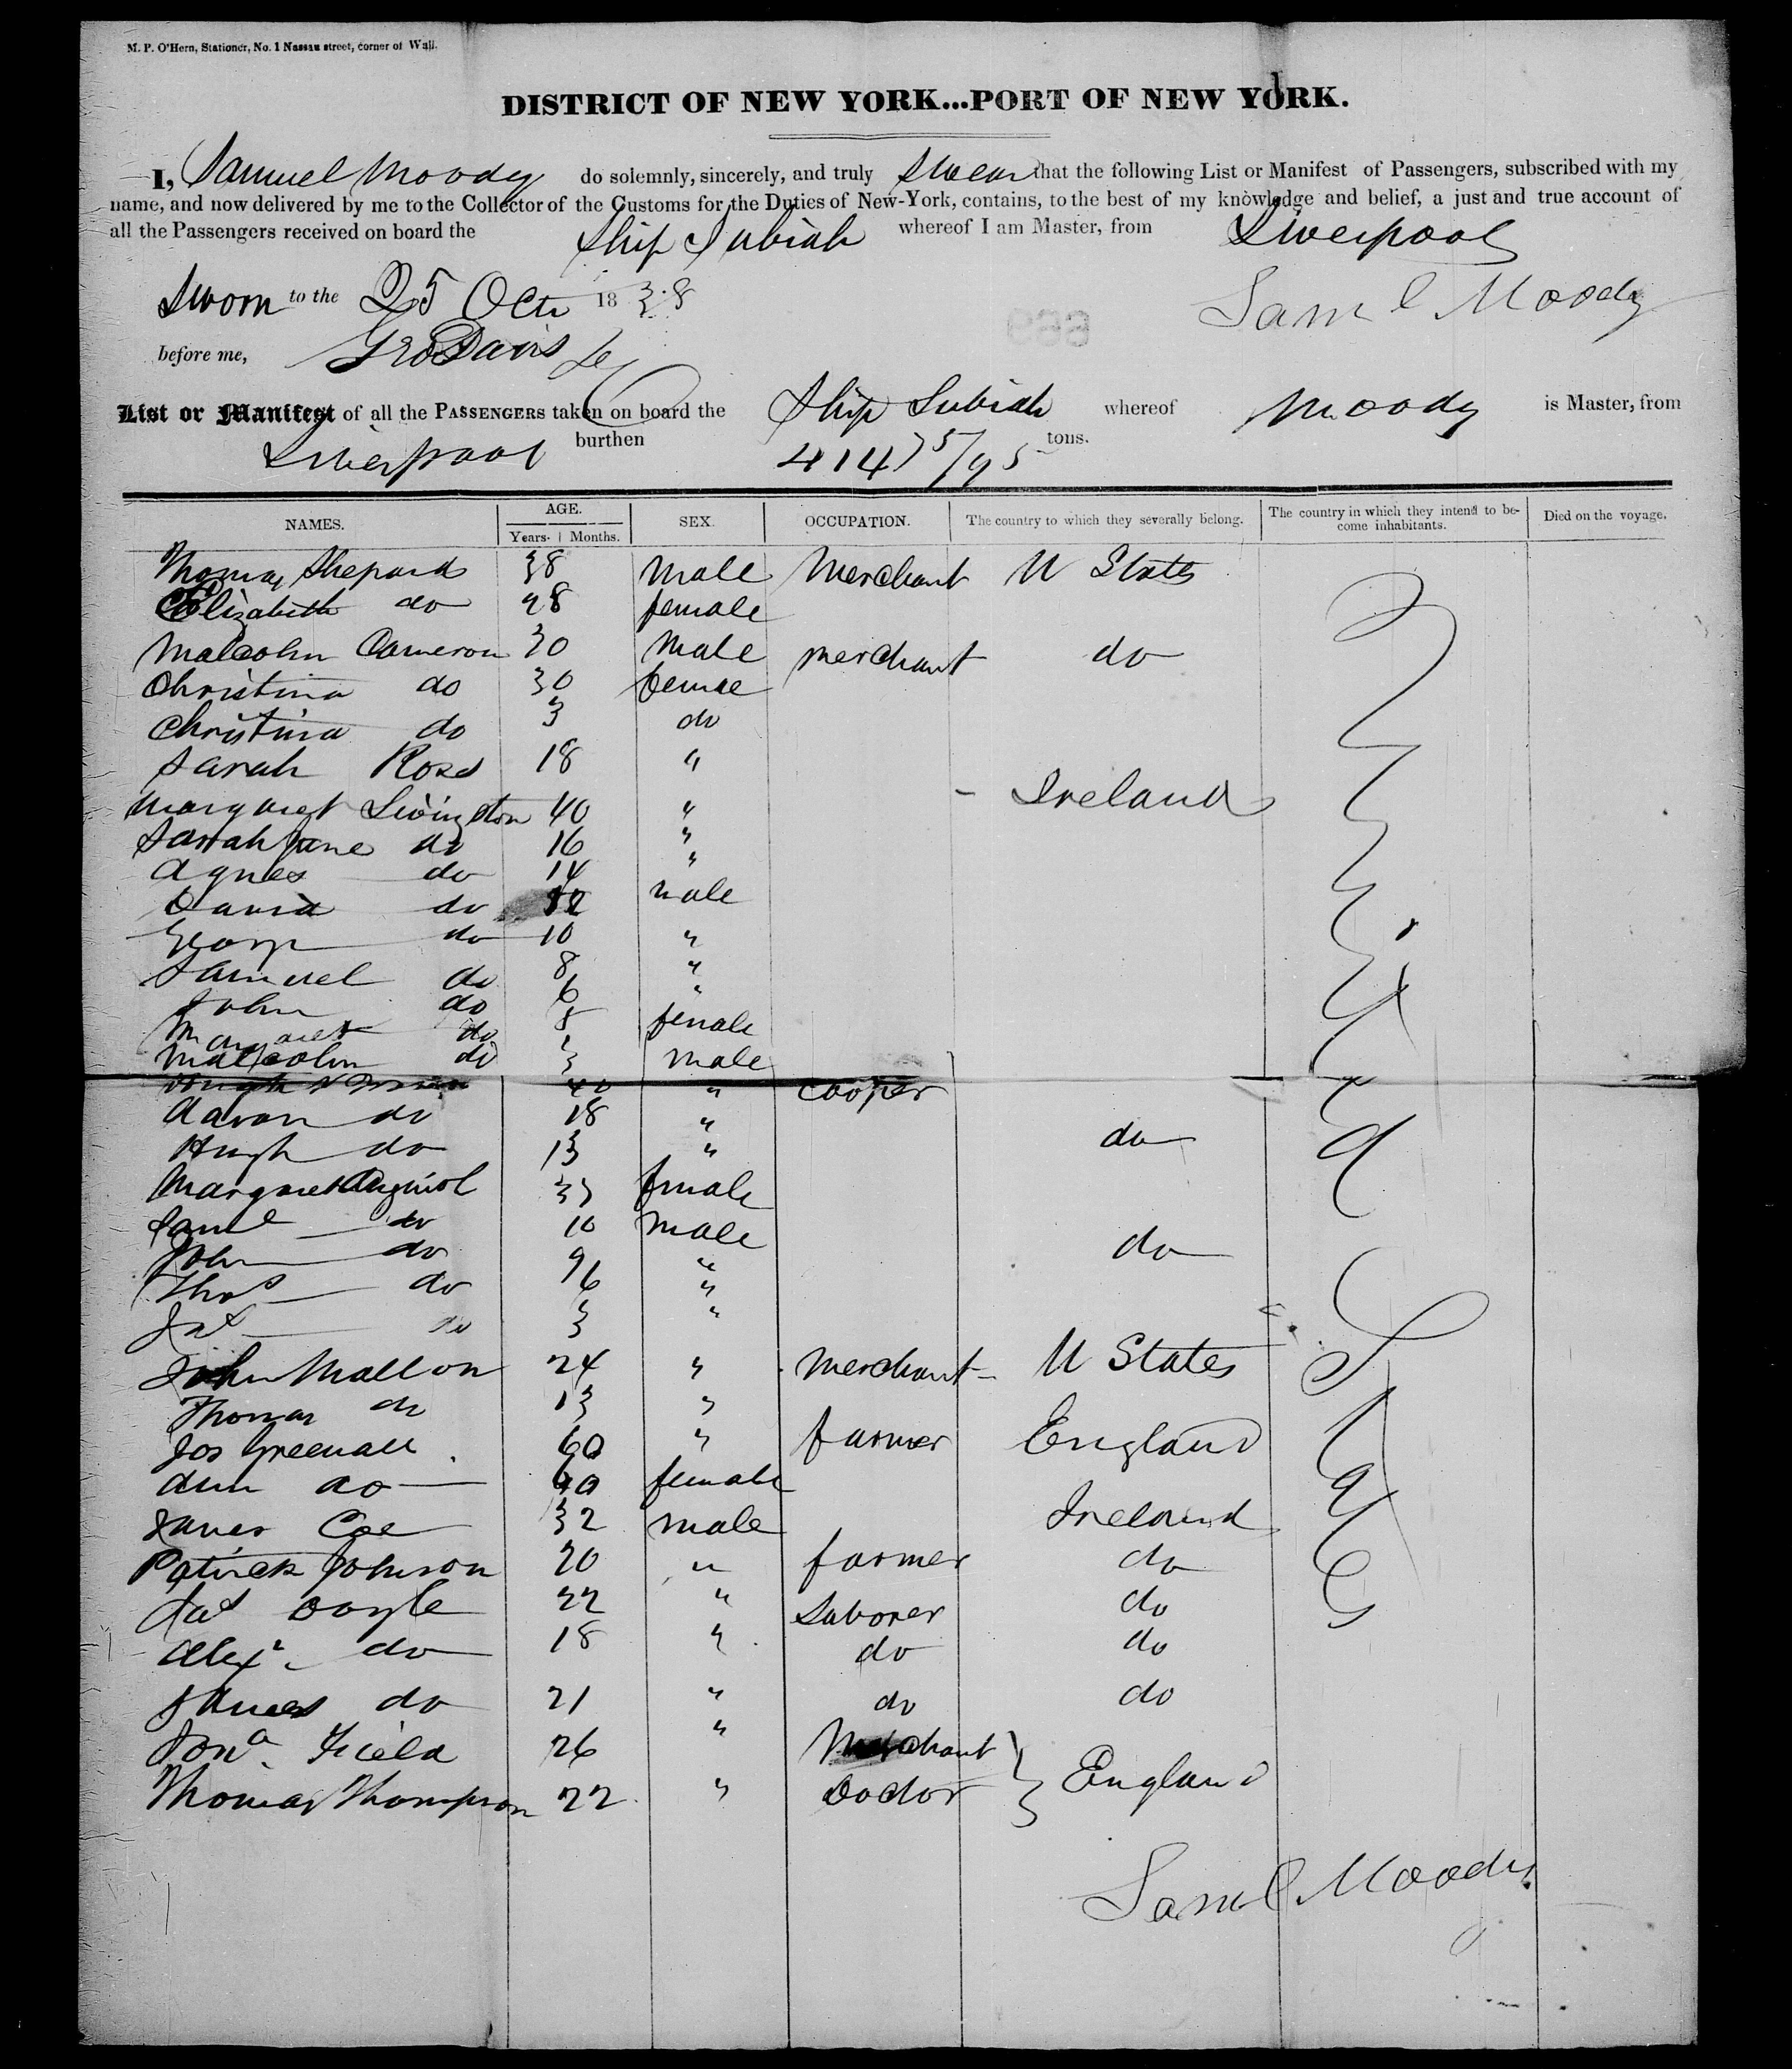 M. P. O'Hern, Stationer, No. 1 Nassau street, corner of Wall.
DISTRICT OF NEW YORK...PORT OF NEW YORK.
I, Samuel Moody do solemnly, sincerely, and truly swear that the following List or Manifest of Passengers, subscribed with my
name, and now delivered by me to the Collector of the Customs for the Duties of New-York, contains, to the best of my knowledge and belief, a just and true account of
all the Passengers received on board the Ship Subiah whereof I am Master, from Liverpool
Sworn to the 25 Octr 1838 Saml Moody
before me, Geo Davis
List or Manifest of all the PASSENGERS taken on board the Ship Subiah whereof Moody is Master, from
Liverpool burthen 414 75/95 tons.
NAMES. AGE. Years. Months. SEX. OCCUPATION. The country to which they severally belong. The country in which they intend to become inhabitants. Died on the voyage.
Thomas Shepard 38 male Merchant U States
Elizabeth do 28 female
Malcolm Cameron 30 male merchant do
Christina do 30 female
Christina do 3 do
Sarah Ross 18 "
Margaret Livingston 40 " Ireland
Sarah Jane do 16 "
Agnes do 14 "
David do 12 male
George do 10 "
Samuel do 8 "
John do 6 "
Margaret do 8 female
Malcolm do 3 male
Hugh 40 " Cooper
Aaron do 18 "
Hugh do 13 " do
Margaret 37 female
Saml do 10 male
John do 9 " do
Thos do 6 "
Jas do 3 "
John Mallon 24 " Merchant U States
Thomas do 13 "
Jos Greenall 60 " farmer England
Ann do 60 female
James Coe 32 male Ireland
Patrick Johnson 20 " farmer do
Jas Doyle 22 " Laborer do
Alexr do 18 " do do
James do 21 " do do
Jona Field 26 " Merchant
Thomas Thompson 22 " Doctor } England
Saml Moody